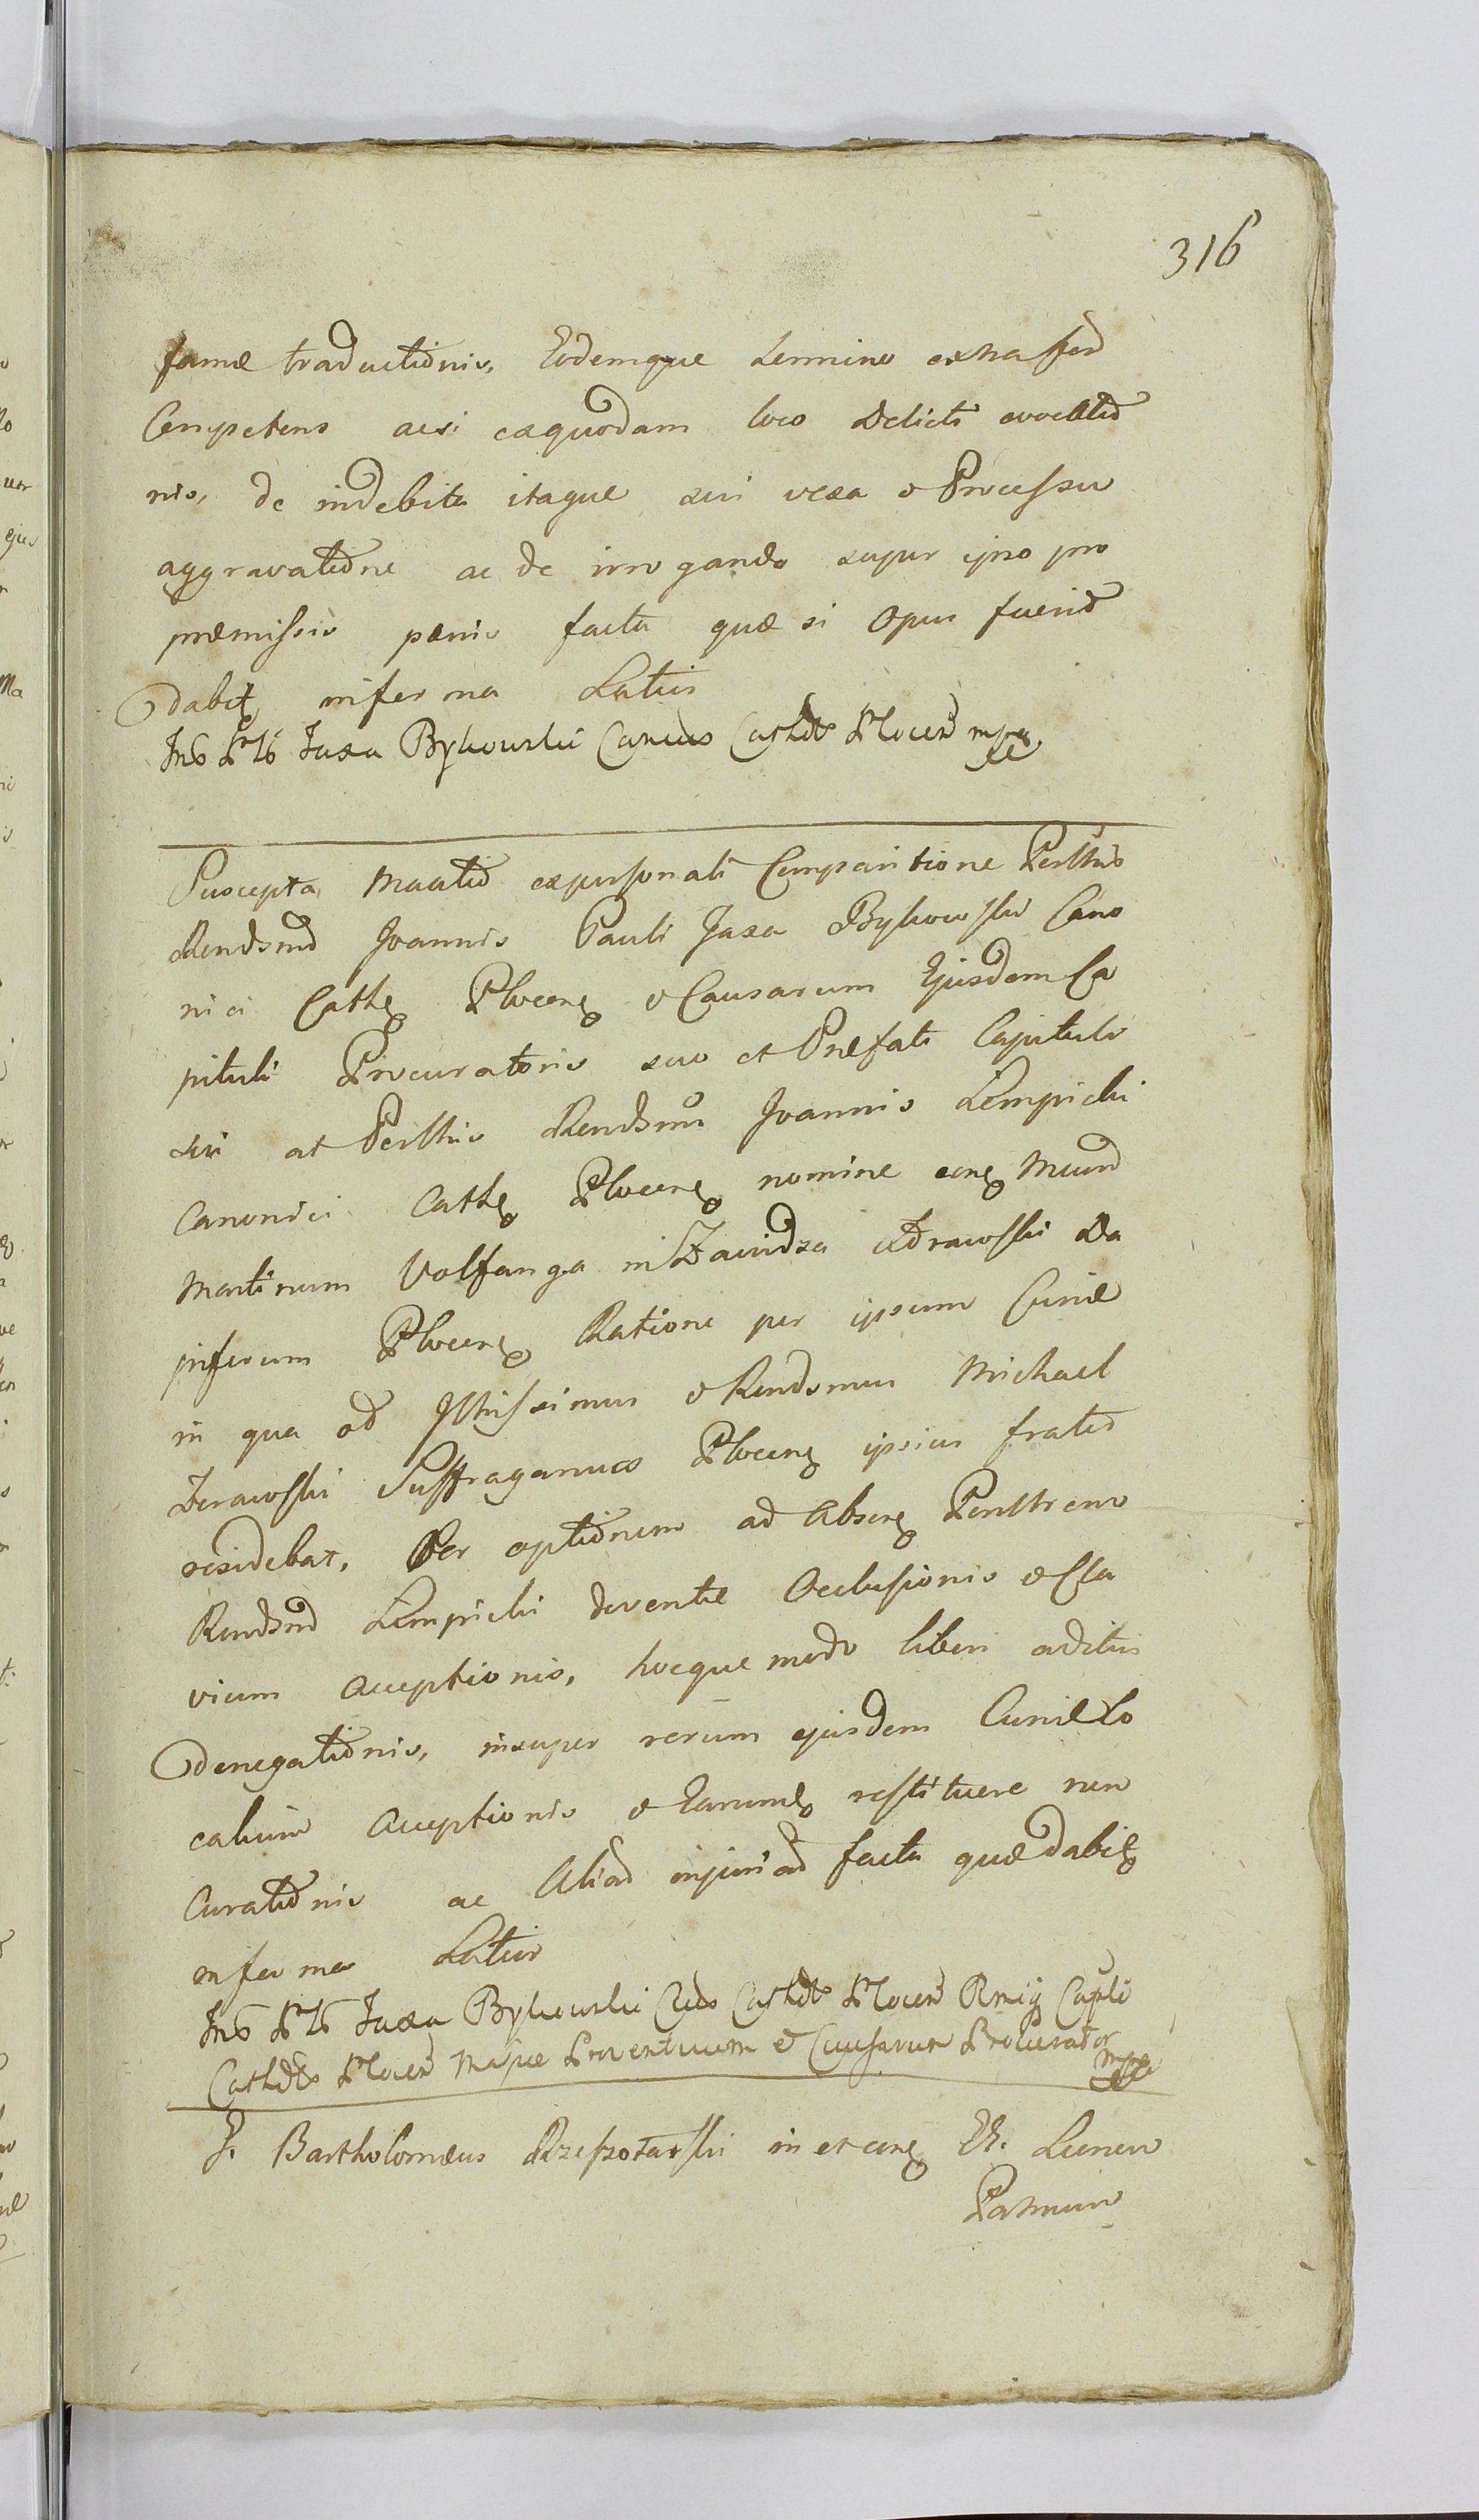 316
famæ traductionis, Eodemque termino extra for
Competens acsi exquodam loco Delicti evocatio
nis, de indebita itaque sui vexa & Processu
aggravatione ac de irrogando super ipso pro
præmissis pænis facta quæ si opus fuerit
dabit inferma Latius
Jaxa Bykowski Cancus Cathdlis Plocen mpa
Suscepta Manlis expersonali Comparitione Perlltris
Rendsmi Joannis Pauli Jaxa Bykowski Cano
nici Cathe Plocens & Causarum Ejusdem Ca
pituli Procuratoris suo et Præfati Capituli
sui at Perlltris Rendsmi Joannis Lempicki
Canonici Cathe Plocens nomine cons Mcum
Martinum Volfanga in Zawidza Zdrawski Da
piferum Plocens Ratione per ipsum Curiæ
in qua od Illtrissimus & Rendsmus Michael
Zerawski Suffraganeus Plocens ipsius frater
residebat, Per optionem ad Absens Perlltrem
Rendsmi Lempicki deventæ Occlusionis & Cla
vium acceptionis, hocque modo liberi aditus
denegationis, insuper rerum ejusdem Curiæ Lo
calium acceptionis & Earumde restituere non
Curationis ac Aliad injuriad facta quæ dabit
inferma Latius
Jaxa Bykowski Cathdlis Plocen Capli
Cathdlis Plocen Proventuum & Causarum Procurator
mpa
J. Bartholomæus Rzeszotarski in et cons
Patruum